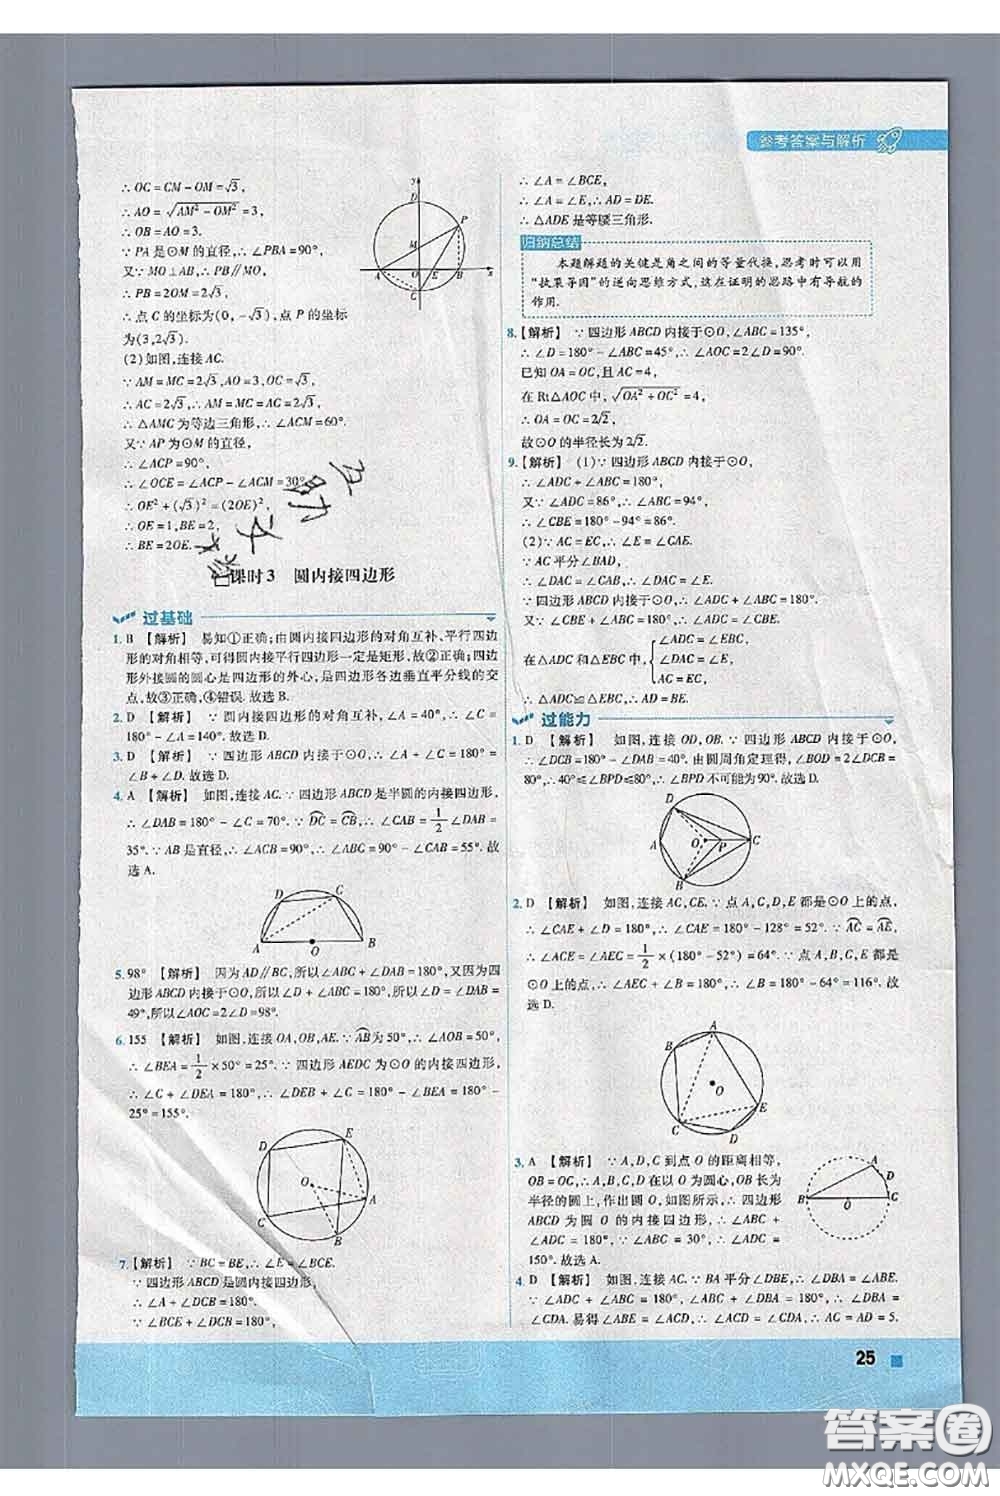 参考答案与解析
∴ OC = CM - OM = √3,
∴ AO = √(AM² - OM²) = 3,
∴ OB = AO = 3.
∵ PA是⊙M的直径,∴ ∠PBA = 90°.
又∵ MO⊥AB,∴ PB∥MO,
∴ PB = 2OM = 2√3,
∴ 点C的坐标为(0, -√3),点P的坐标
为(3,2√3).
(2)如图,连接AC.
∵ AM = MC = 2√3,AO = 3,OC = √3,
∴ AC = 2√3,∴ AM = MC = AC = 2√3,
∴ △AMC为等边三角形,∴ ∠ACM = 60°.
又∵ AP为⊙M的直径,
∴ ∠ACP = 90°,
∴ ∠OCE = ∠ACP - ∠ACM = 30°,
∴ OE² + (√3)² = (2OE)²,
∴ OE = 1,BE = 2,
∴ BE = 2OE.
课时3 圆内接四边形
过基础
1. B 【解析】 易知①正确;由圆内接四边形的对角互补,平行四边
形的对角相等,可得圆内接平行四边形一定是矩形,故②正确;四边
形外接圆的圆心是四边形的外心,是四边形各边垂直平分线的交
点,故③正确,④错误. 故选B.
2. D 【解析】 ∵ 圆内接四边形的对角互补,∠A = 40°,∴ ∠C =
180° - ∠A = 140°. 故选D.
3. D 【解析】 ∵ 四边形ABCD内接于⊙O,∴ ∠A + ∠C = 180° =
∠B + ∠D. 故选D.
4. A 【解析】 如图,连接AC. ∵ 四边形ABCD是半圆的内接四边形,
∴ ∠DAB = 180° - ∠C = 70°. ∵ DC = CB,∴ ∠CAB = 1/2 ∠DAB =
35°. ∵ AB是直径,∴ ∠ACB = 90°,∴ ∠ABC = 90° - ∠CAB = 55°. 故
选A.
A O B C D
5. 98° 【解析】 因为AD∥BC,所以∠ABC + ∠DAB = 180°,又因为四
边形ABCD内接于⊙O,所以∠ABC + ∠D = 180°,所以∠D = ∠DAB =
49°,所以∠AOC = 2∠D = 98°.
6. 155 【解析】 如图,连接OA,OB,AE. ∵ AB为50°,∴ ∠AOB = 50°,
∴ ∠BEA = 1/2 × 50° = 25°. ∵ 四边形AEDC为⊙O的内接四边形,
∴ ∠C + ∠DEA = 180°,∴ ∠C + ∠DEB = 180° - ∠BEA = 180° -
25° = 155°.
D E O C A B
7. 【解析】 ∵ BC = BE,∴ ∠E = ∠BCE.
∵ 四边形ABCD是圆内接四边形,
∴ ∠A + ∠DCB = 180°.
∵ ∠BCE + ∠DCB = 180°,
∴ ∠A = ∠BCE,
∴ ∠A = ∠E,∴ AD = DE.
∴ △ADE是等腰三角形.
归纳总结
本题解题的关键是角之间的等量代换,思考时可以用
“执果导因”的逆向思维方式,这在证明的思路中有导航的
作用.
8. 【解析】 ∵ 四边形ABCD内接于⊙O,∠ABC = 135°,
∴ ∠D = 180° - ∠ABC = 45°,∴ ∠AOC = 2∠D = 90°.
已知OA = OC,且AC = 4,
在Rt△AOC中,√(OA² + OC²) = 4,
∴ OA = OC = 2√2,
故⊙O的半径长为2√2.
9. 【解析】 (1)∵ 四边形ABCD内接于⊙O,
∴ ∠ADC + ∠ABC = 180°,
又∵ ∠ADC = 86°,∴ ∠ABC = 94°,
∴ ∠CBE = 180° - 94° = 86°.
(2)∵ AC = EC,∴ ∠E = ∠CAE.
∵ AC平分∠BAD,
∴ ∠DAC = ∠CAB,∴ ∠DAC = ∠E.
∵ 四边形ABCD内接于⊙O,∴ ∠ADC + ∠ABC = 180°.
又∵ ∠CBE + ∠ABC = 180°,∴ ∠ADC = ∠CBE.
在△ADC和△EBC中,{∠ADC = ∠EBC, ∠DAC = ∠E, AC = EC,
∴ △ADC≌△EBC,∴ AD = BE.
过能力
1. D 【解析】 如图,连接OD,OB. ∵ 四边形ABCD内接于⊙O,
∴ ∠DCB = 180° - ∠DAB = 40°. 由圆周角定理得,∠BOD = 2∠DCB =
80°,∴ 40°≤∠BPD≤80°,∴ ∠BPD不可能为90°. 故选D.
D A O P C B
2. D 【解析】 如图,连接AC,CE. ∵ 点A,C,D,E都是⊙O上的点,
∴ ∠CAE + ∠D = 180°,∴ ∠CAE = 180° - 128° = 52°. ∵ AC = AE,
∴ ∠ACE = ∠AEC = 1/2 × (180° - 52°) = 64°. ∵ 点A,B,C,E都是
⊙O上的点,∴ ∠AEC + ∠B = 180°,∴ ∠B = 180° - 64° = 116°. 故
选D.
A B O C D E
3. A 【解析】 ∵ A,D,C到点O的距离相等,
OB = OC,∴ 以O为圆心,OB长为
半径的圆上,作出圆O,如图所示,∴ 四边形
ABCD为圆O的内接四边形,∴ ∠ABC +
∠ADC = 180°. ∵ ∠ABC = 30°,∴ ∠ADC =
150°. 故选A.
4. D 【解析】 如图,连接AC. ∵ BA平分∠DBE,∴ ∠DBA = ∠ABE.
∵ ∠ADC + ∠ABC = 180°,∠ABC + ∠ABE = 180°,∴ ∠DBA =
∠CDA. 易得∠ABE = ∠CDA,∴ ∠ACD = ∠CDA,∴ AC = AD = 5.
25
答案圈
MXQE.COM